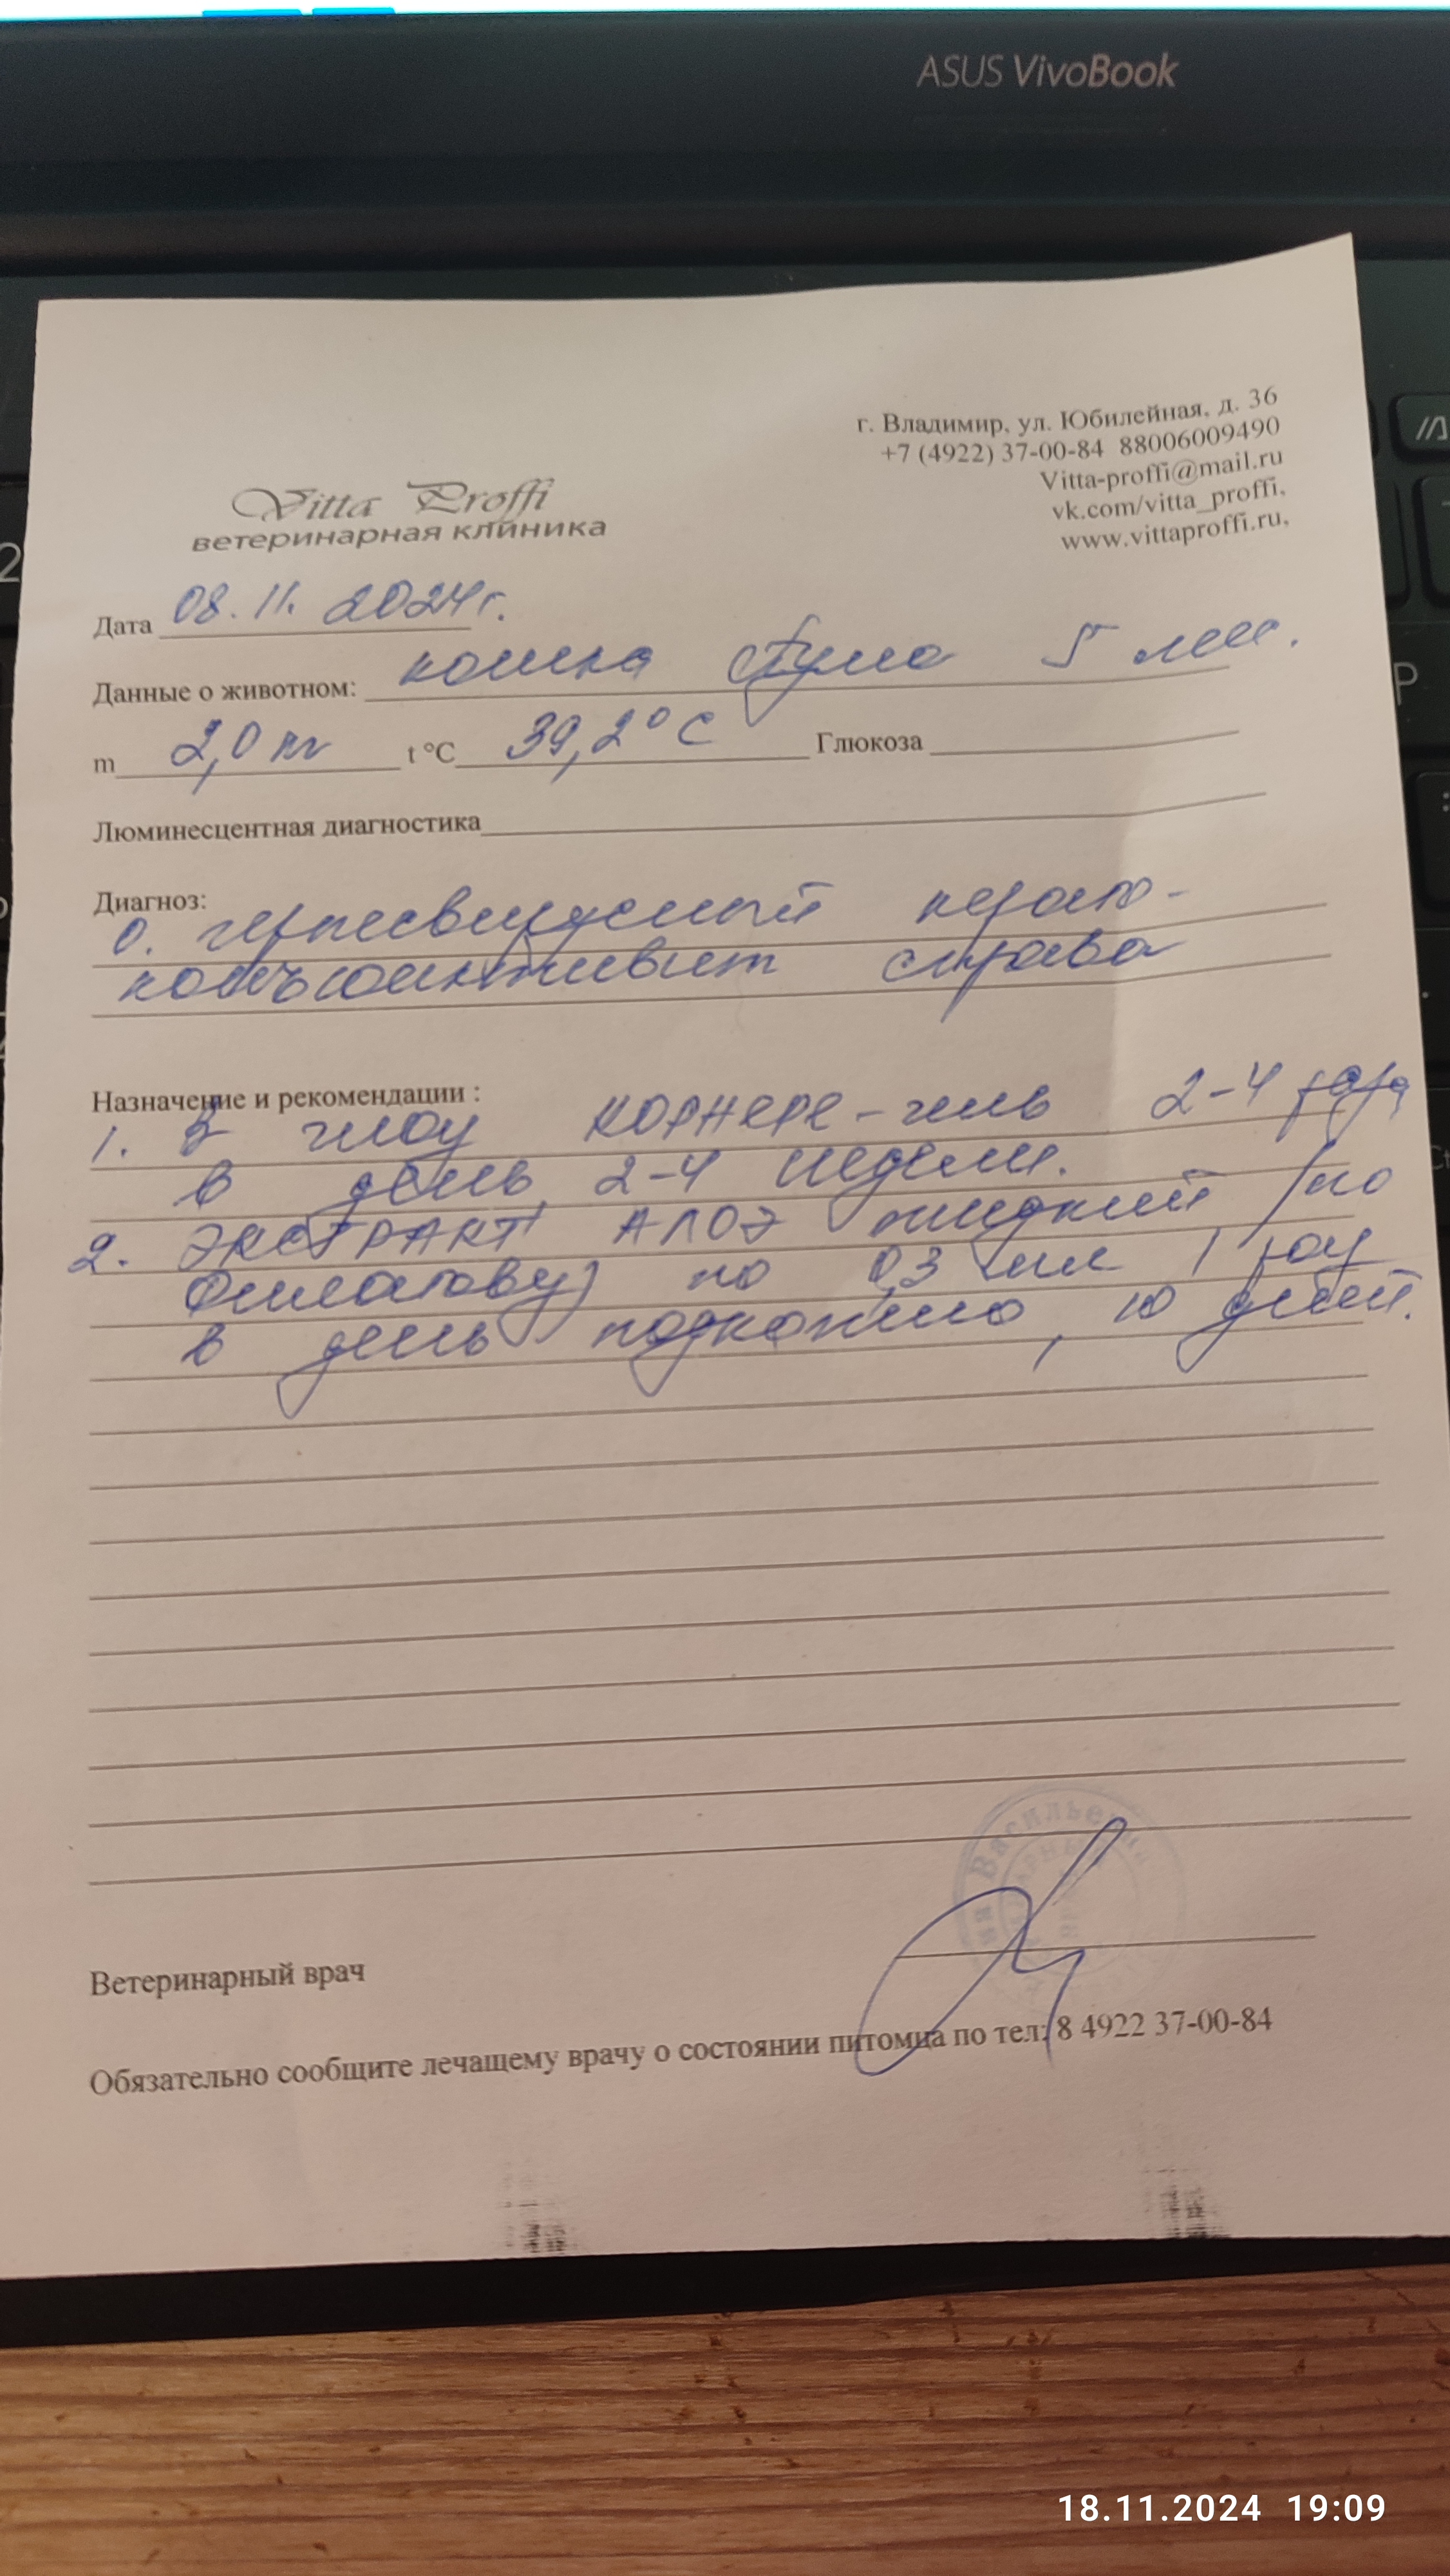 ASUS VivoBook
г. Владимир, ул. Юбилейная, д. 36
+7 (4922) 37-00-84 88006009490
Vitta-proffi@mail.ru
vk.com/vitta_proffi,
www.vittaproffi.ru,
Vitta Proffi
ветеринарная клиника
Дата 08.11.2024г.
Данные о животном: кошка 5 мес.
m 2,0 кг t °C 39,2°C Глюкоза
Люминесцентная диагностика
Диагноз:
о. герпесвирусный керато-
конъюнктивит справа
Назначение и рекомендации :
1. В глаз КОРНЕРЕ-гель 2-4 раза
в день, 2-4 недели.
2. ЭКСТРАКТ АЛОЭ жидкий (по
Филатову) по 0,3 мл 1 раз
в день подкожно, 10 дней.
Васильевна
Ветеринарный врач
Обязательно сообщите лечащему врачу о состоянии питомца по тел: 8 4922 37-00-84
18.11.2024 19:09